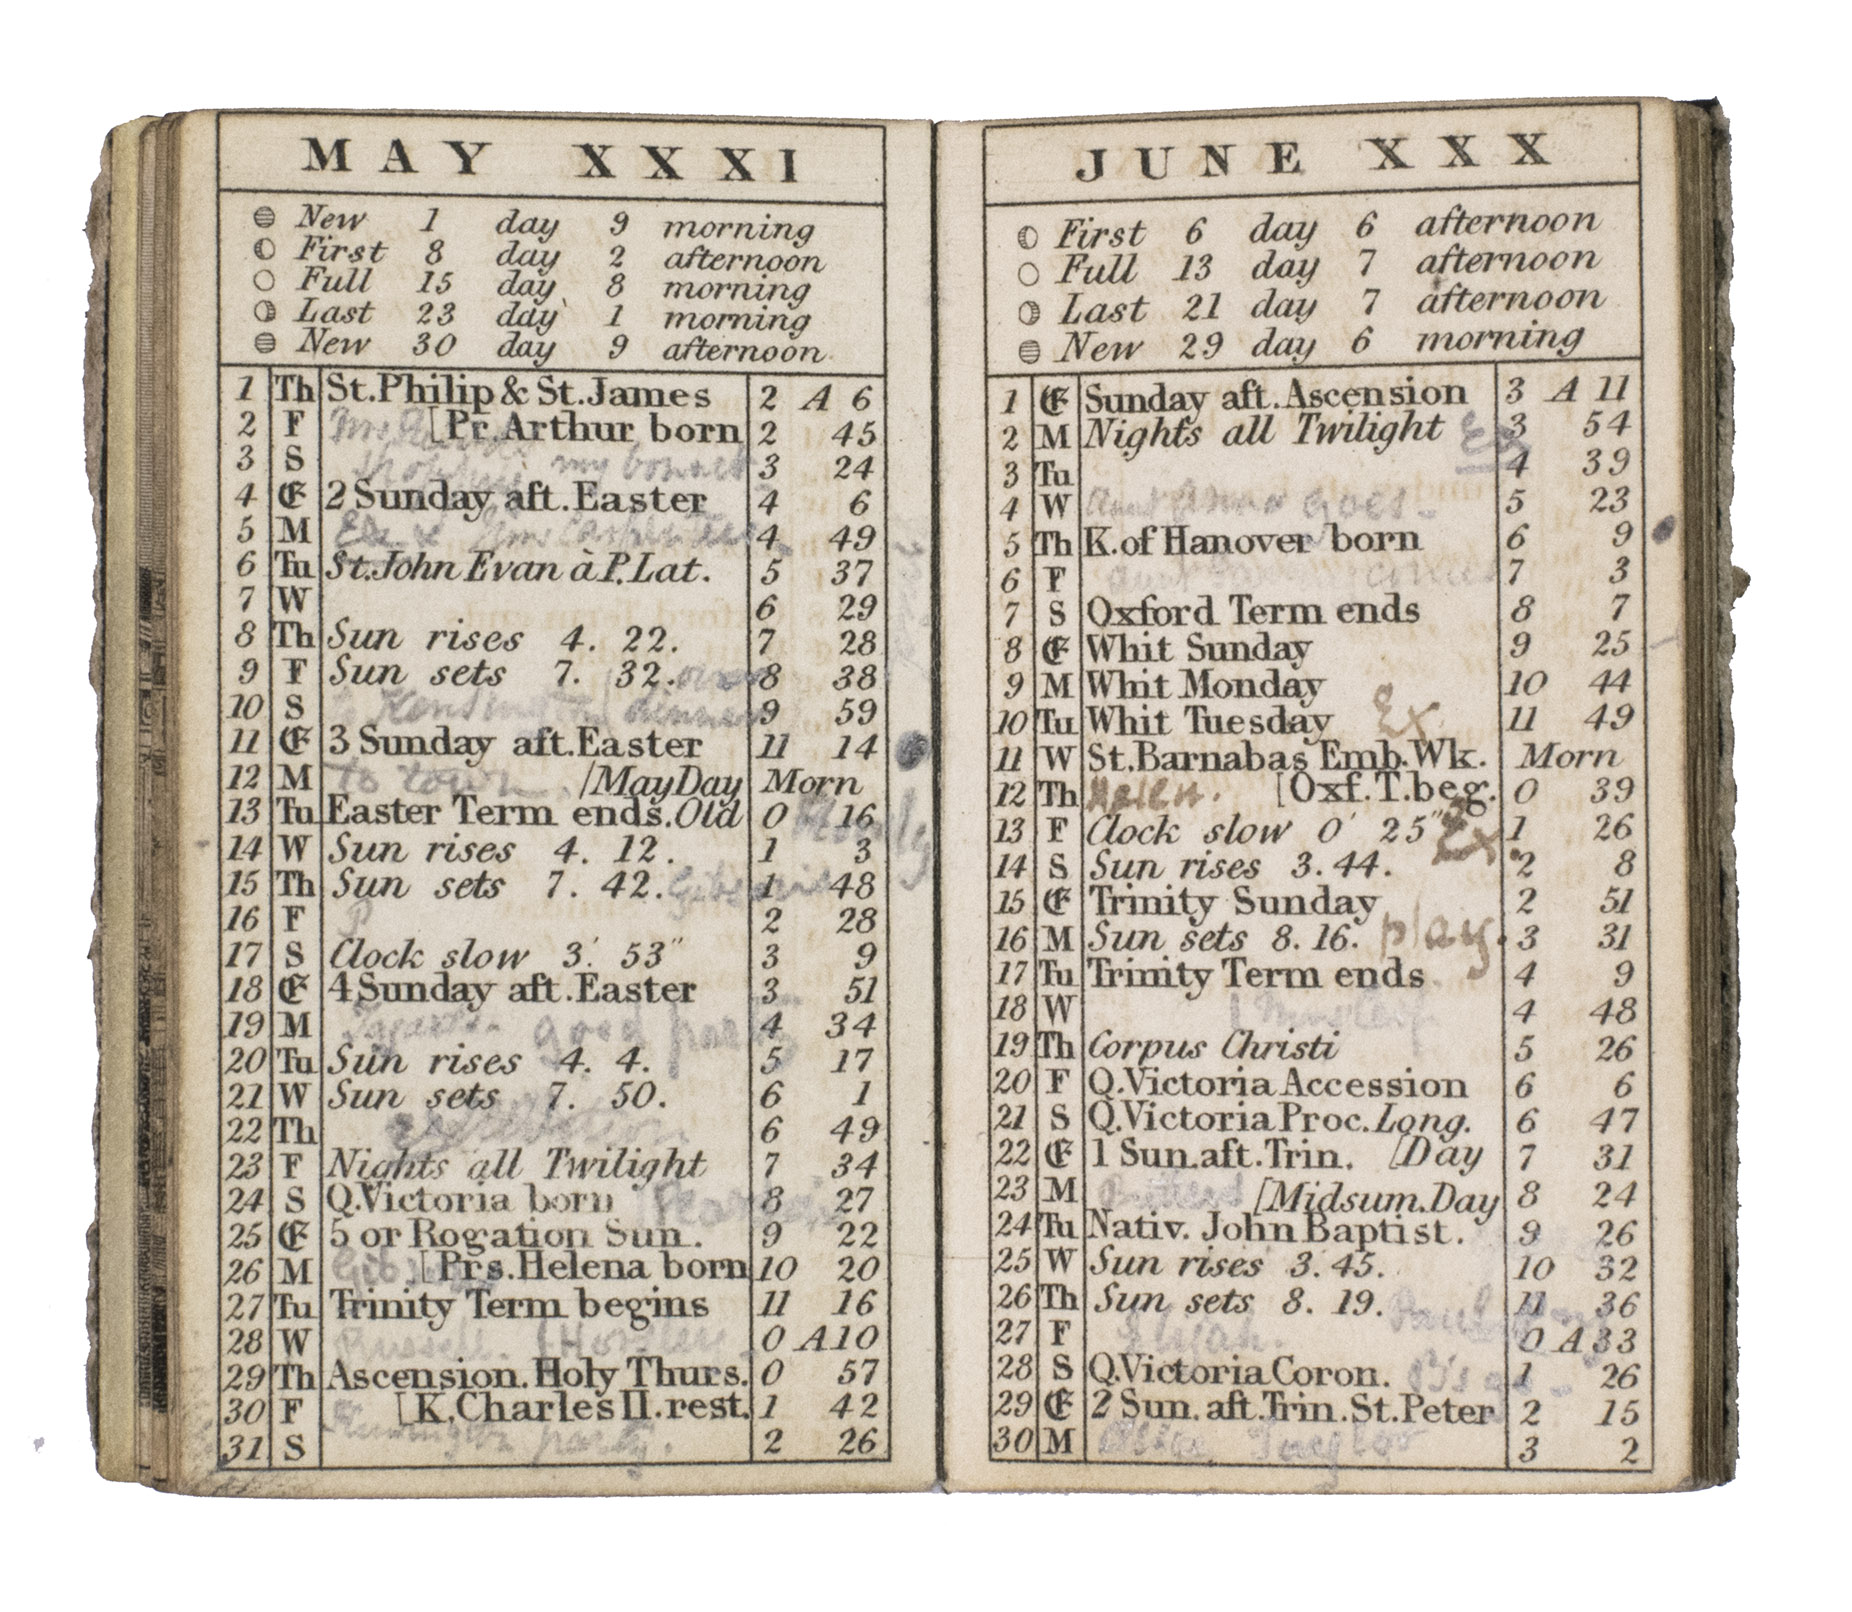 MAY XXXI
New 1 day 9 morning
First 8 day 2 afternoon
Full 15 day 8 morning
Last 23 day 1 morning
New 30 day 9 afternoon
1 Th St. Philip & St. James 2 A 6
2 F [Pr. Arthur born 2 45
3 S my bonnet 3 24
4 E 2 Sunday aft. Easter 4 6
5 M 4 49
6 Tu St. John Evan à P. Lat. 5 37
7 W 6 29
8 Th Sun rises 4. 22. 7 28
9 F Sun sets 7. 32. 8 38
10 S Kensington 9 59
11 E 3 Sunday aft. Easter 11 14
12 M to town. [May Day Morn
13 Tu Easter Term ends. Old 0 16
14 W Sun rises 4. 12. 1 3
15 Th Sun sets 7. 42. 1 48
16 F P 2 28
17 S Clock slow 3' 53" 3 9
18 E 4 Sunday aft. Easter 3 51
19 M good party 4 34
20 Tu Sun rises 4. 4. 5 17
21 W Sun sets 7. 50. 6 1
22 Th Exhibition 6 49
23 F Nights all Twilight 7 34
24 S Q. Victoria born 8 27
25 E 5 or Rogation Sun. 9 22
26 M [Prs. Helena born 10 20
27 Tu Trinity Term begins 11 16
28 W Russell. 0 A 10
29 Th Ascension. Holy Thurs. 0 57
30 F [K. Charles II. rest. 1 42
31 S party. 2 26
JUNE XXX
First 6 day 6 afternoon
Full 13 day 7 afternoon
Last 21 day 7 afternoon
New 29 day 6 morning
1 E Sunday aft. Ascension 3 A 11
2 M Nights all Twilight Ex 3 54
3 Tu 4 39
4 W Aunt Anna goes 5 23
5 Th K. of Hanover born 6 9
6 F 7 3
7 S Oxford Term ends 8 7
8 E Whit Sunday 9 25
9 M Whit Monday 10 44
10 Tu Whit Tuesday Ex 11 49
11 W St. Barnabas Emb. Wk. Morn
12 Th Helen. [Oxf. T. beg. 0 39
13 F Clock slow 0' 25" Ex. 1 26
14 S Sun rises 3. 44. 2 8
15 E Trinity Sunday 2 51
16 M Sun sets 8. 16. play. 3 31
17 Tu Trinity Term ends 4 9
18 W 4 48
19 Th Corpus Christi 5 26
20 F Q. Victoria Accession 6 6
21 S Q. Victoria Proc. Long. 6 47
22 E 1 Sun. aft. Trin. [Day 7 31
23 M [Midsum. Day 8 24
24 Tu Nativ. John Baptist. 9 26
25 W Sun rises 3. 45. 10 32
26 Th Sun sets 8. 19. 11 36
27 F Elijah. 0 A 33
28 S Q. Victoria Coron. 1 26
29 E 2 Sun. aft. Trin. St. Peter 2 15
30 M 3 2